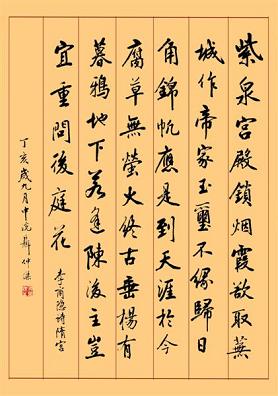 紫泉宮殿鎖烟霞欲取蕪
城作帝家玉璽不緣歸日
角錦帆應是到天涯於今
腐草無螢火終古垂楊有
暮鴉地下若逢陳後主豈
宜重問後庭花
李商隱詩隋宮
丁亥歲九月中浣